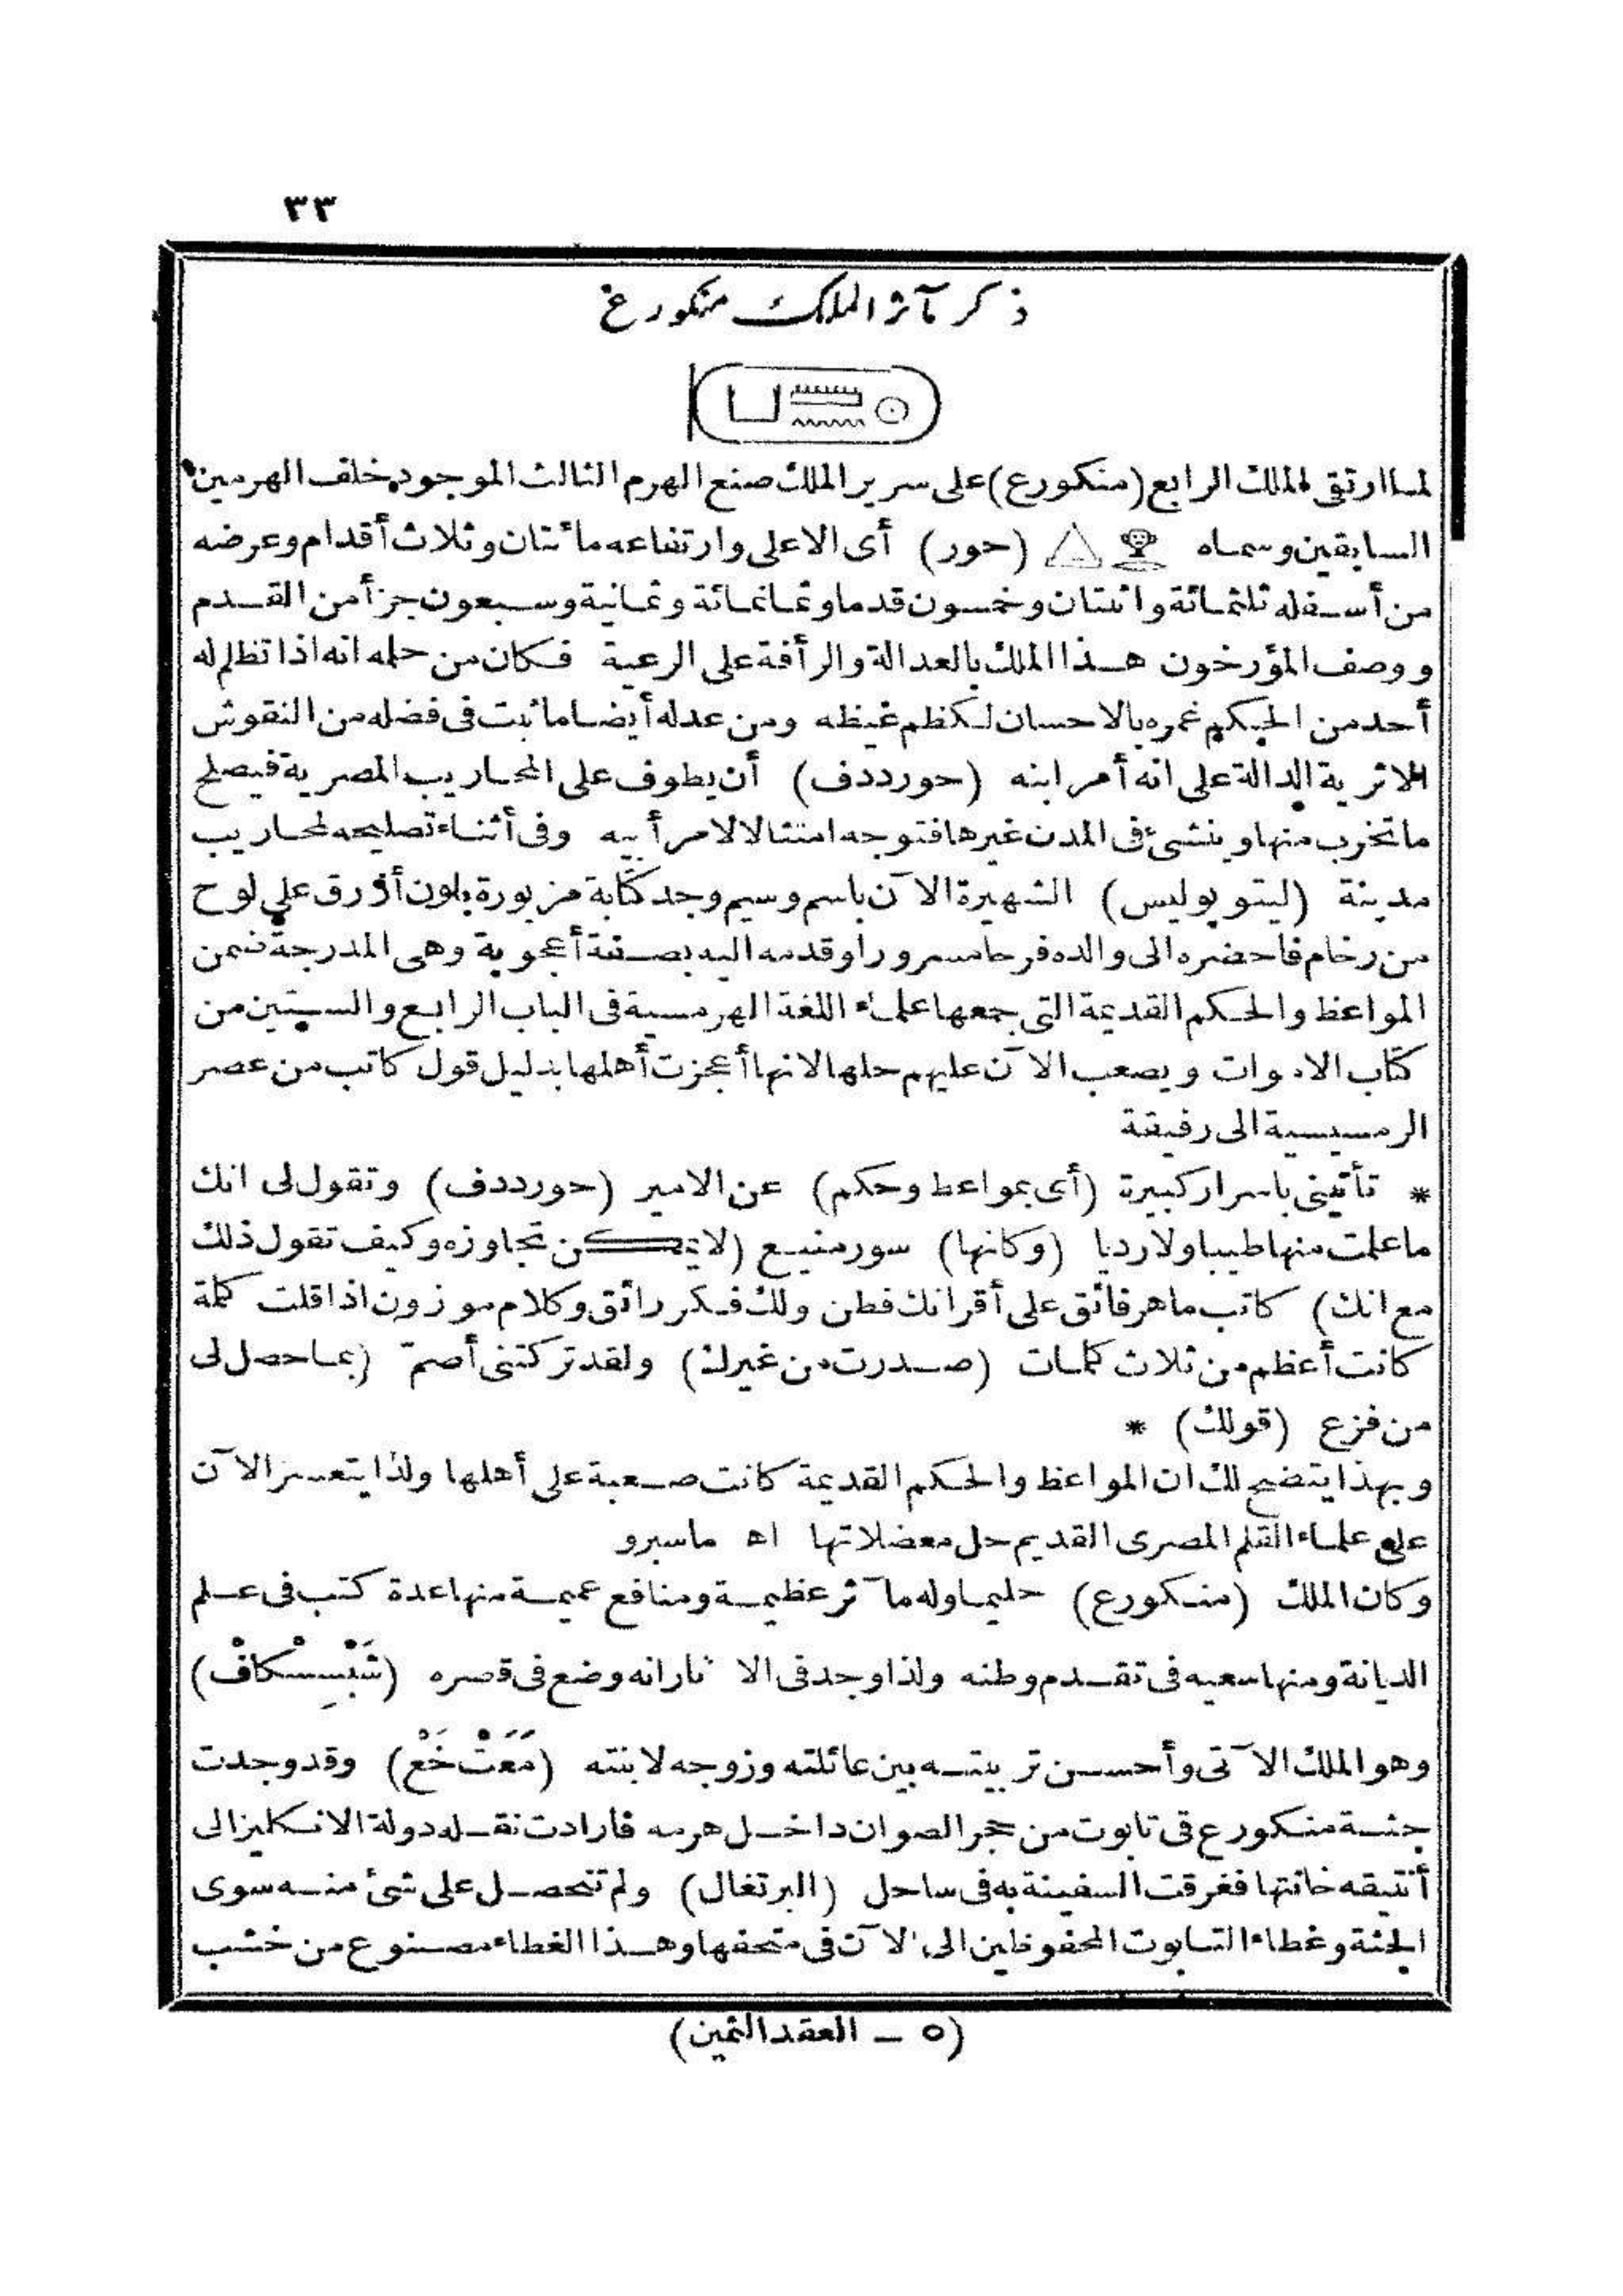 ٣٣
ذكر مآثر الملك منكورع
لما ارتقى الملك الرابع (منكورع) على سرير الملك صنع الهرم الثالث الموجود خلف الهرمين
السابقين وسماه (حور) أى الاعلى وارتفاعه مائتان وثلاث أقدام وعرضه
من أسفله ثلثمائة واثنتان وخمسون قدما وثمانمائة وثمانية وسبعون جزأ من القدم
ووصف المؤرخون هذا الملك بالعدالة والرأفة على الرعية فكان من حلمه انه اذا تظلم له
أحد من الحكم غمره بالاحسان لكظم غيظه ومن عدله أيضا ما ثبت فى فضله من النقوش
الاثرية الدالة على انه أمر ابنه (حورددف) أن يطوف على المحاريب المصرية فيصلح
ما تخرب منها وينشئ فى المدن غيرها فتوجه امتثالا لامر أبيه وفى أثناء تصليحه لمحاريب
مدينة (ليتوپوليس) الشهيرة الآن باسم وسيم وجد كتابة مزبورة بلون أزرق على لوح
من رخام فاحضره الى والده فرحا مسرورا وقدمه اليه بصفة أعجوبة وهى المدرجة ضمن
المواعظ والحكم القديمة التى جمعها علماء اللغة الهرمسية فى الباب الرابع والستين من
كتاب الاموات ويصعب الآن عليهم حلها لانها أعجزت أهلها بدليل قول كاتب من عصر
الرمسيسية الى رفيقة
* تأتينى باسرار كبيرة (أى بمواعظ وحكم) عن الامير (حورددف) وتقول لى انك
ما علمت منها طيبا ولا رديا (وكانها) سور منيع (لا يمكن تجاوزه وكيف تقول ذلك
مع انك) كاتب ماهر فائق على أقرانك فطن ولك فكر رائق وكلام موزون اذا قلت كلمة
كانت أعظم من ثلاث كلمات (صدرت من غيرك) ولقد تركتنى أصمّ (بما حصل لى
من فزع (قولك) *
وبهذا يتضح لك ان المواعظ والحكم القديمة كانت صعبة على أهلها ولذا يتعسر الآن
على علماء القلم المصرى القديم حل معضلاتها اه ماسبرو
وكان الملك (منكورع) حليما وله مآثر عظيمة ومنافع عميمة منها عدة كتب فى علم
الديانة ومنها سعيه فى تقدم وطنه ولذا وجد فى الآثار انه وضع فى قصره (شَبْسِسْكافْ)
وهو الملك الآتى وأحسن تربيته بين عائلته وزوجه لابنته (مَعَتْ خَعْ) وقد وجدت
جثة منكورع فى تابوت من حجر الصوان داخل هرمه فارادت نقله دولة الانكليز الى
أنتيقه خانتها فغرقت السفينة به فى ساحل (البرتغال) ولم تتحصل على شئ منه سوى
الجثة وغطاء التابوت المحفوظين الى الآن فى متحفها وهذا الغطاء مصنوع من خشب
(٥ - العقد الثمين)